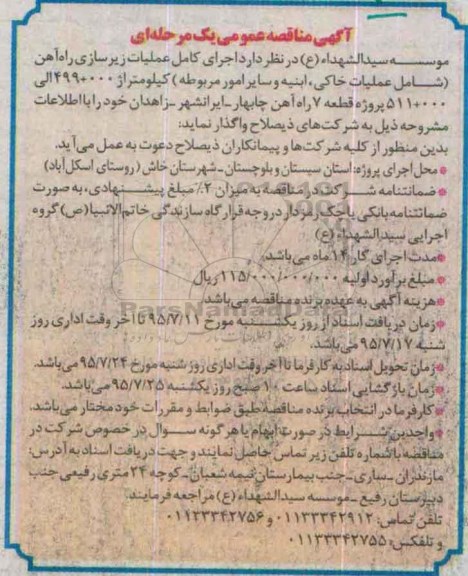 آگهی مناقصه عمومی یک مرحله‌ای
موسسه سیدالشهداء (ع) در نظر دارد اجرای کامل عملیات زیرسازی راه‌آهن
(شامل عملیات خاکی، ابنیه و سایر امور مربوطه) کیلومتراژ ۴۹۹+۰۰۰ الی
۵۱۱+۰۰۰ پروژه قطعه ۷ راه آهن چابهار ـ ایرانشهر ـ زاهدان خود را با اطلاعات
مشروحه ذیل به شرکت‌های ذیصلاح واگذار نماید:
بدین منظور از کلیه شرکت‌ها و پیمانکاران ذیصلاح دعوت به عمل می‌آید.
* محل اجرای پروژه: استان سیستان و بلوچستان ـ شهرستان خاش (روستای اسکل‌آباد)
* ضمانتنامه شرکت در مناقصه به میزان ۲٪ مبلغ پیشنهادی، به صورت
ضمانتنامه بانکی یا چک رمزدار در وجه قرارگاه سازندگی خاتم‌الانبیا (ص) گروه
اجرایی سیدالشهداء (ع)
* مدت اجرای کار ۱۴ ماه می‌باشد.
* مبلغ برآورد اولیه ۱۱۵/۰۰۰/۰۰۰/۰۰۰ ریال
* هزینه آگهی به عهده برنده مناقصه می‌باشد.
ParsNamadData
* زمان دریافت اسناد از روز یکشنبه مورخ ۹۵/۷/۱۱ تا آخر وقت اداری روز
شنبه ۹۵/۷/۱۷ می‌باشد.
* زمان تحویل اسناد به کارفرما تا آخر وقت اداری روز شنبه مورخ ۹۵/۷/۲۴ می‌باشد.
* زمان بازگشایی اسناد ساعت ۱۰ صبح روز یکشنبه ۹۵/۷/۲۵ می‌باشد.
* کارفرما در انتخاب برنده مناقصه طبق ضوابط و مقررات خود مختار می‌باشد.
* واجدین شرایط در صورت ابهام یا هر گونه سوال در خصوص شرکت در
مناقصه با شماره تلفن زیر تماس حاصل نمایند و جهت دریافت اسناد به آدرس:
مازندران ـ ساری ـ جنب بیمارستان نیمه شعبان ـ کوچه ۲۴ متری رفیعی جنب
دبیرستان رفیع ـ موسسه سیدالشهداء (ع) مراجعه فرمایند.
تلفن تماس: ۰۱۱۳۳۳۴۲۹۱۲ و ۰۱۱۳۳۳۴۲۷۵۶
و تلفکس: ۰۱۱۳۳۳۴۲۷۵۵